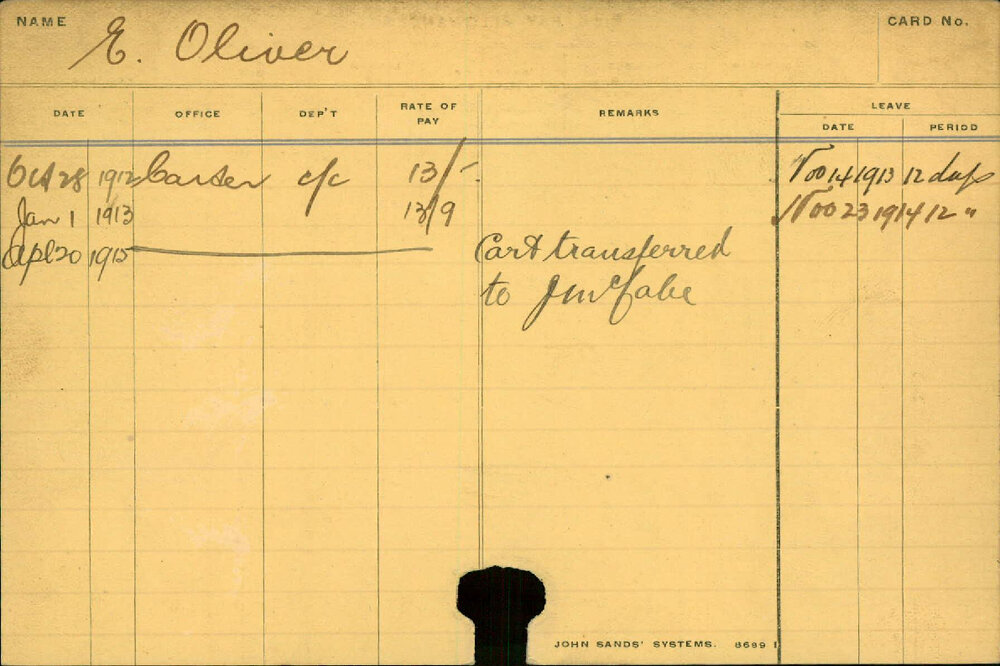 NAME E. Oliver CARD No.
DATE OFFICE DEP'T RATE OF PAY REMARKS LEAVE
DATE PERIOD
Oct 28 1912 Carter c/c 13/- Nov 14 1913 12 days
Jan 1 1913 13/9 Nov 23 1914 12 "
Apl 20 1915 Cart transferred
to J McCabe
JOHN SANDS' SYSTEMS. 8699 1